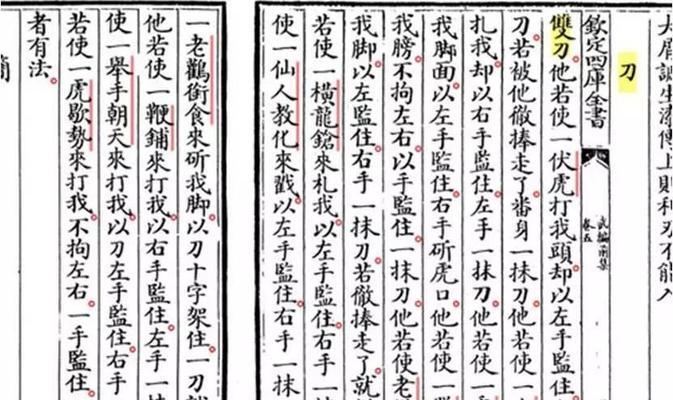 屑調生漆傅上則利刃不能入
刀
欽定四庫全書
武編前集
卷五
雙刀他若使一伏虎打我頭却以左手監住
刀若被他徹捧走了番身一抹刀他若使一
扎我却以右手監住左手一抹刀他若使一
我脚面以左手監住右手斫虎口他若使一
我膀不拘左右以手監住一抹刀他若使老
我脚以左監住右手一抹刀若徹捧走了就
若使一橫龍鎗來札我以左手監住右手一
使一仙人教化來戳以左手監住右手一抹
一老鸛銜食來斫我脚以刀十字架住一刀
他若使一鞭鋪來打我以右手監住左手一
使一舉手朝天來打我以刀左手監住右手
若使一虎歇勢來打我不拘左右一手監住
者有法